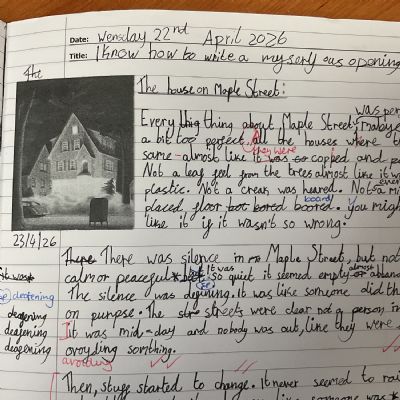 Date: Wensday 22nd April 2026
Title: I know how to write a myserly ous opening
4ht
The house on Maple Street:
was per
Every thing about Maple Street,
a bit too perfect. all the houses where t
they were
same - almost like it was copied and pa
Not a leaf feel from the trees almost like it w
even
plastic. Not a creak was heared. Not a mi
board
placed floor bot bored boored. you might
like it if it wasn't so wrong.
23/4/26
There There was silence in Maple Street, but not
it was
It was
almost
calm or peaceful So quiet it seemed empty or aband
se
The silence was defining. It was like someone did th
se deafening
on purpse. The streets were clear not a person in
deafening
It was mid-day and nobody was out, like they were
deafening
ovoyding somthing.
deafening
avoiding
Then, stuge started to change. It never seemed to rai